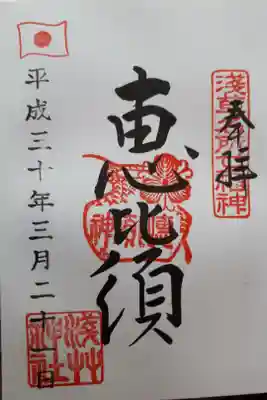 淺草名所七福神
奉拝
恵比須
平成三十年三月二十一日
淺草神社